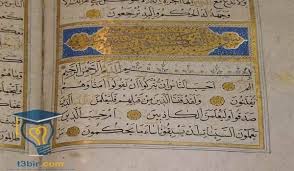 وجهه له الحكم واليه ترجعون
بسم الله الرحمن الرحيم
الم احسب الناس ان يتركوا ان يقولوا امنا وهم لا
يفتنون ولقد فتنا الذين من قبلهم فليعلمن الله الذين
صدقوا وليعلمن الكاذبين ام حسب الذين
يعملون السيئات ان يسبقونا ساء ما يحكمون
t3bir.com